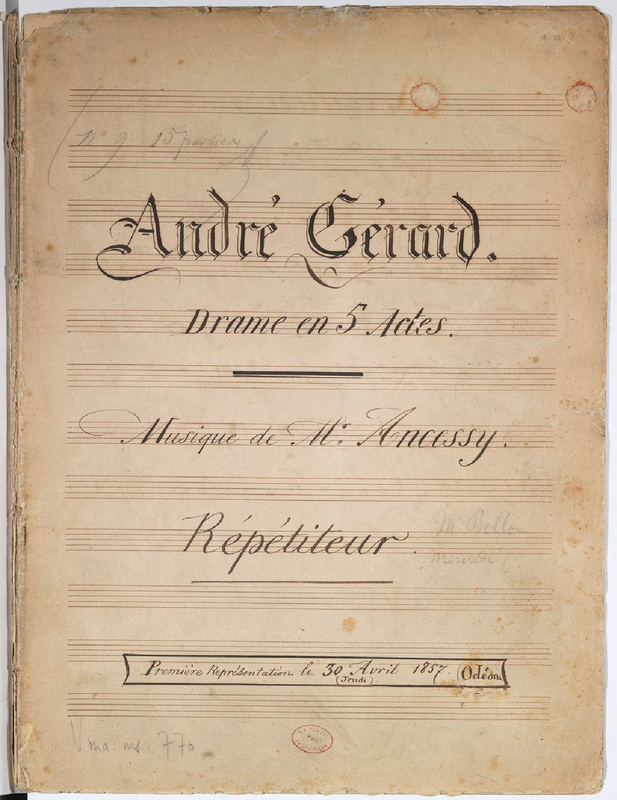 nº 9 15 parties
André Gérard.
Drame en 5 Actes.
Musique de Mr. Ancessy.
Répétiteur.
Mr Bellon
Mercredi
Première Représentation le 30 Avril 1857. (Odéon)
(Jeudi).
Vma. ms. 770